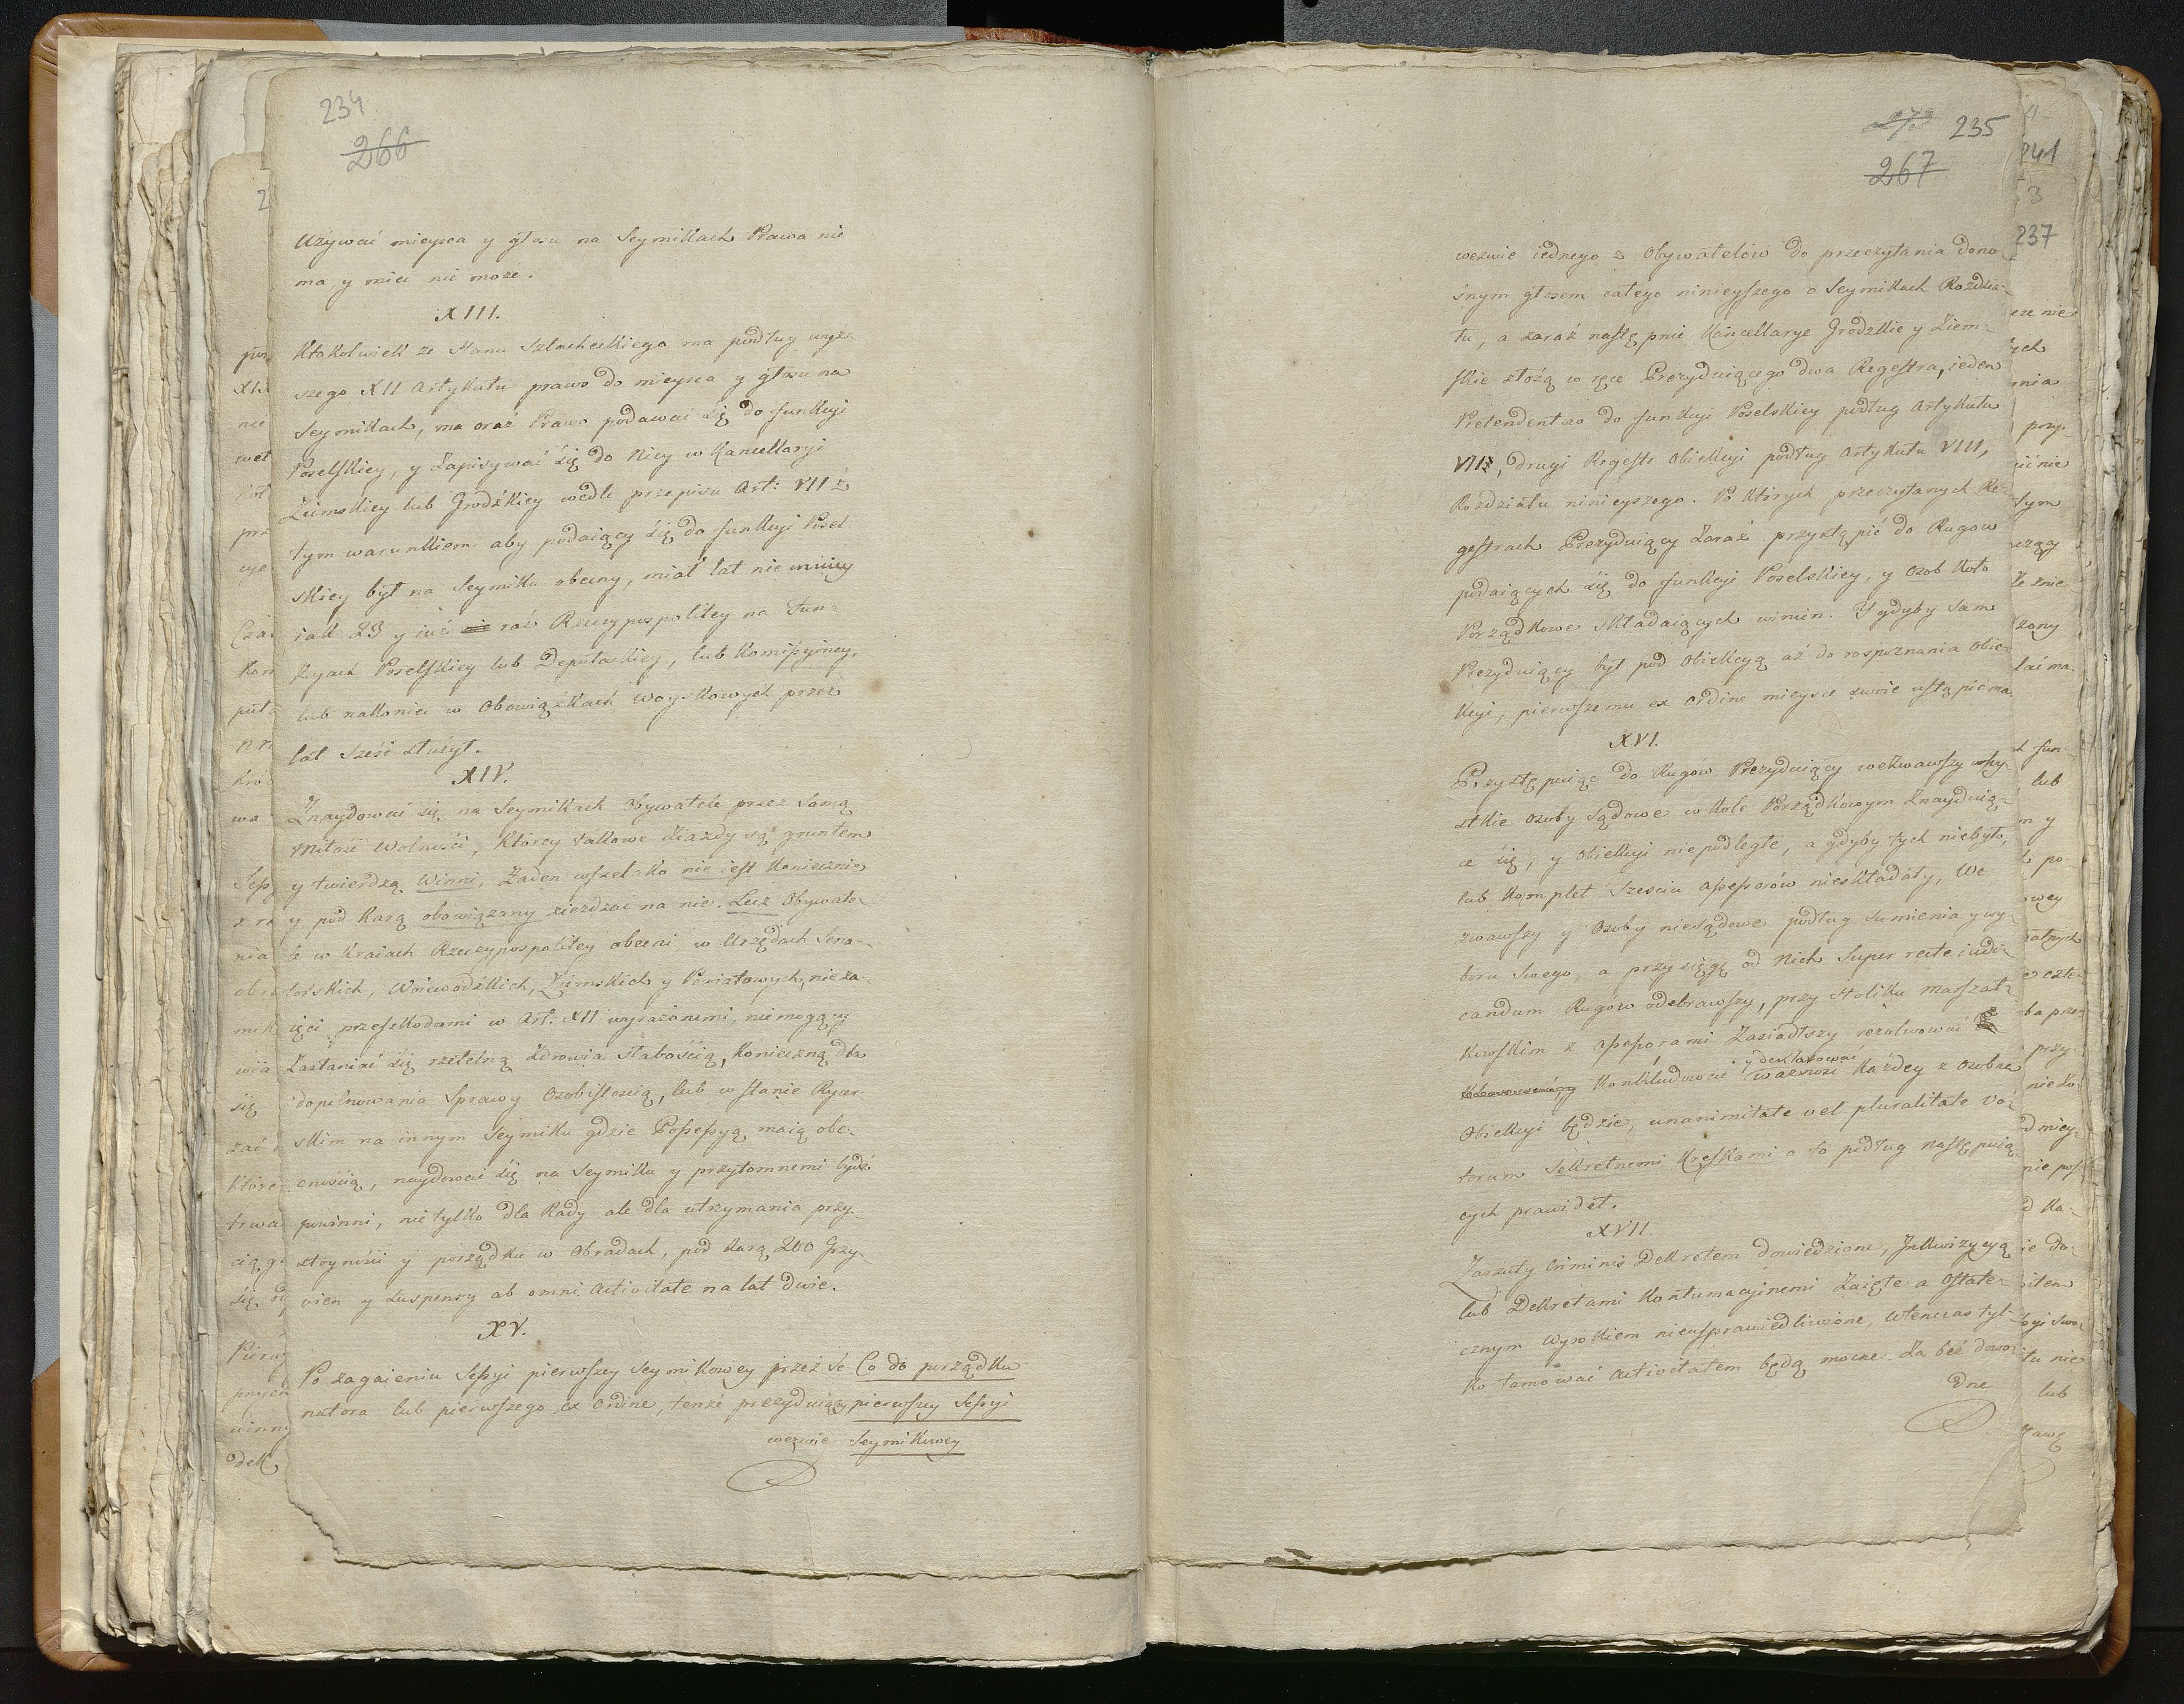 234
266
Używać mieysca y głosu na Seymikach Prawa nie
ma y mieć nie może.
XIII.
Ktokolwiek ze Stanu Szlacheckiego ma podług wyż-
szego XII Artykułu prawo do mieysca y głosu na
Seymikach, ma oraz Prawo podawać się do funkcyi
Poselskiey, y zapisywać się do Niey w Kancellaryi
Ziemskiey lub Grodzkiey wedle przepisu Art: VII z
tym warunkiem aby podaiący się do funkcyi Posel
skiey był na Seymiku obecny, miał lat nie mniey
iak 23 y iuż raz Rzeczypospolitey na Fun-
kcyach Poselskiey lub Deputackiey, lub Komissyiney,
lub nakoniec w Obowiązkach Woyskowych przez
lat sześć służył.
XIV.
Znaydować się na Seymikach Obywatele przez samą
miłość Wolności, Ktorey takowe Ziazdy są gruntem
y twierdzą Winni, Żaden wszelako nie iest Koniecznie
y pod Karą obowiązany ziezdzać na nie. Lecz Obywate-
le w Kraiach Rzeczypospolitey obecni, w Urzędach Sena-
torskich, Woiewodzkich, Ziemskich y Powiatowych, nieza-
ięci przeszkodami w Art: XII wyrażonemi, nie mogący
Zasłaniać się rzetelną Zdrowia słabością, Konieczną dla
dopilnowania Sprawy Osobistością, lub w stanie Rycer-
skim na innym Seymiku gdzie Possessyą maią obe-
cnością, naydować się na Seymiku y przytomnemi bydź
powinni, nietylko dla Rady ale dla utrzymania przy-
stoyności y porządku w Obradach, pod karą 200 Grzy-
wien y suspensy ab omni Activitate na lat dwie.
XV.
Po zagaieniu Sessyi pierwszey Seymikowey przez Se- Co do porządku
natora lub pierwszego ex Ordine, tenże prezyduiący pierwszey Sessyi
wezwie Seymikowey
235
267
wezwie iednego z Obywatelów do przeczytania dono-
śnym głosem całego ninieyszego o Seymikach Rozdzia-
łu, a zaraz następnie Kancellarye Grodzkie y Ziem-
skie złożą w ręce Prezyduiącego dwa Regestra, ieden
Pretendentow do funkcyi Poselskiey podług Artykułu
VII, drugi Regestr Obiekcyi podług Artykułu VIII,
Rozdziału ninieyszego. Po których przeczytanych Re-
gestrach Prezyduiący Zaraz przystąpić do Rugow
podaiących się do funkcyi Poselskiey, y Osob Koło
Porządkowe składaiących winien. Y gdyby sam
Prezyduiący był pod Obiekcyą aż do rozpoznania Obie-
kcyi, pierwszemu ex Ordine mieysce swoie ustąpić ma.
XVI.
Przystępuiąc do Rugów Prezyduiący wezwawszy wszy-
stkie osoby sądowe w kole Porządkowym Znayduią-
ce się, y Obiekcyi niepodległe, a gdyby tych niebyło,
lub Komplet sześciu assessorów nieskładały, We
zwawszy y Osoby niesądowe podług sumienia y wy
boru Swego, a przysięgę od Nich super recte iudi-
candum Rugów odebrawszy, przy stoliku marszał-
kowskim z assessorami Zasiadłszy rezolwować
y deklarować
Konkludować ważność Każdey z Osobna
Obiekcyi będzie, unanimitate vel pluralitate Vo-
torum Sekretnemi Kreskami a to podług następuią
cych prawideł.
XVII.
Zarzuty Criminis Dekretem dowiedzione, Inkwizycyą
lub Dekretami Kontumacyinemi Zaięte a Ostate-
cznym Wyrokiem nieusprawiedliwione, wtenczas tyl-
ko tamować Activitatem będą mocne. Za bez dowo-
dne
241
237